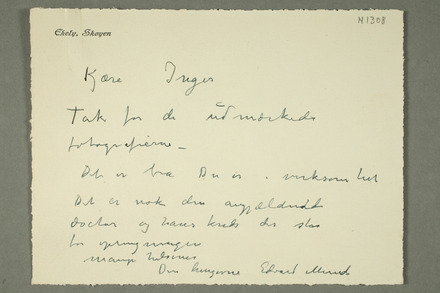 N 1308
Ekely, Skøyen
Kjære Inger
Tak for de udmærkede
fotografierne –
Det er bra Du er i virksomhet
Det er nok den
doctor og hans kreds der
for
mange hilsener
Din hengivne Edvard Munch